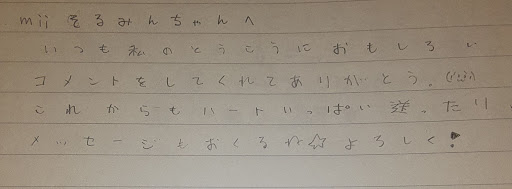 mii そるみんちゃんへ
いつも私のとうこうにおもしろい
コメントをしてくれてありがとう。
これからもハートいっぱい送ったり、
メッセージもおくるね☆よろしく!